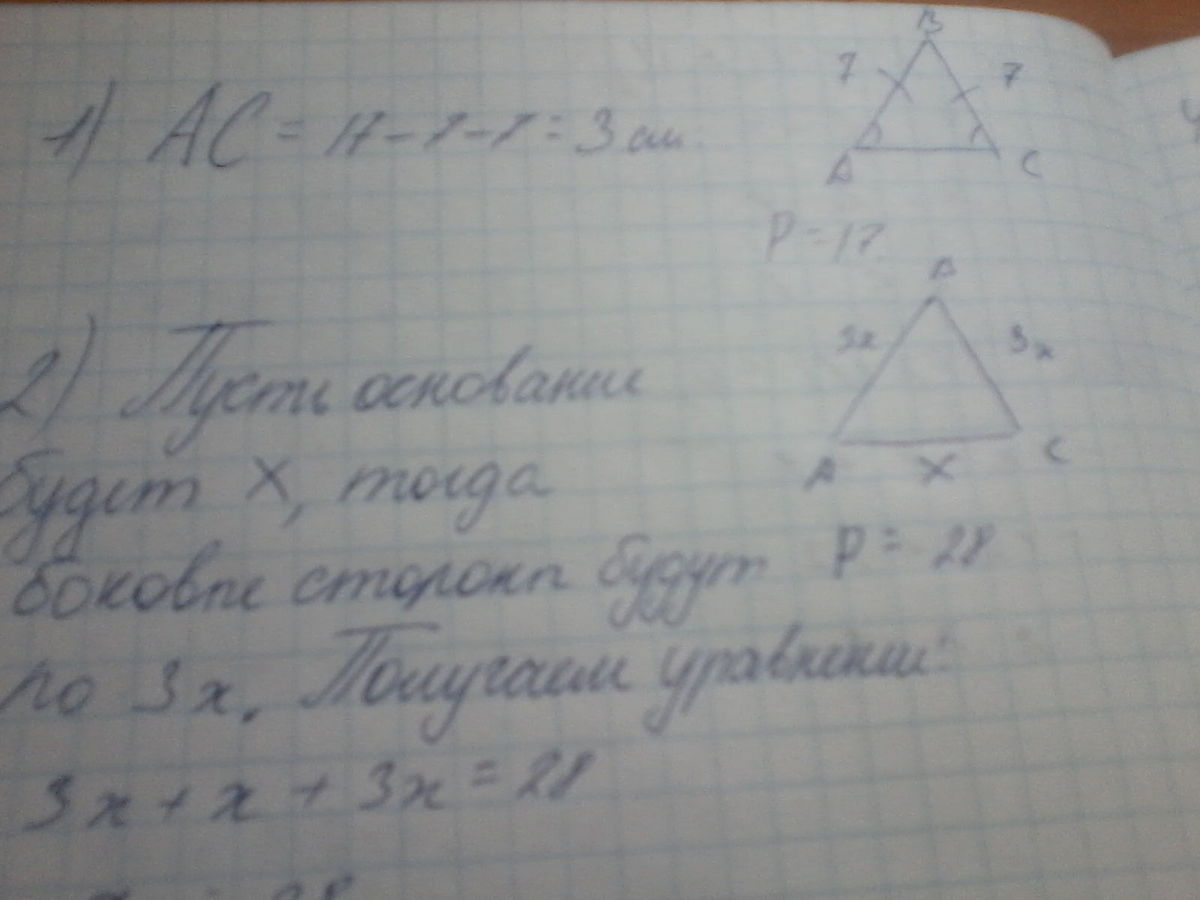 1) AC = 17 - 7 - 7 = 3 см.
B
7 7
A C
P = 17
2) Пусть основание
будет x, тогда
боковые стороны будут
по 3x. Получаем уравнение:
3x + x + 3x = 28
B
3x 3x
A x C
P = 28
28